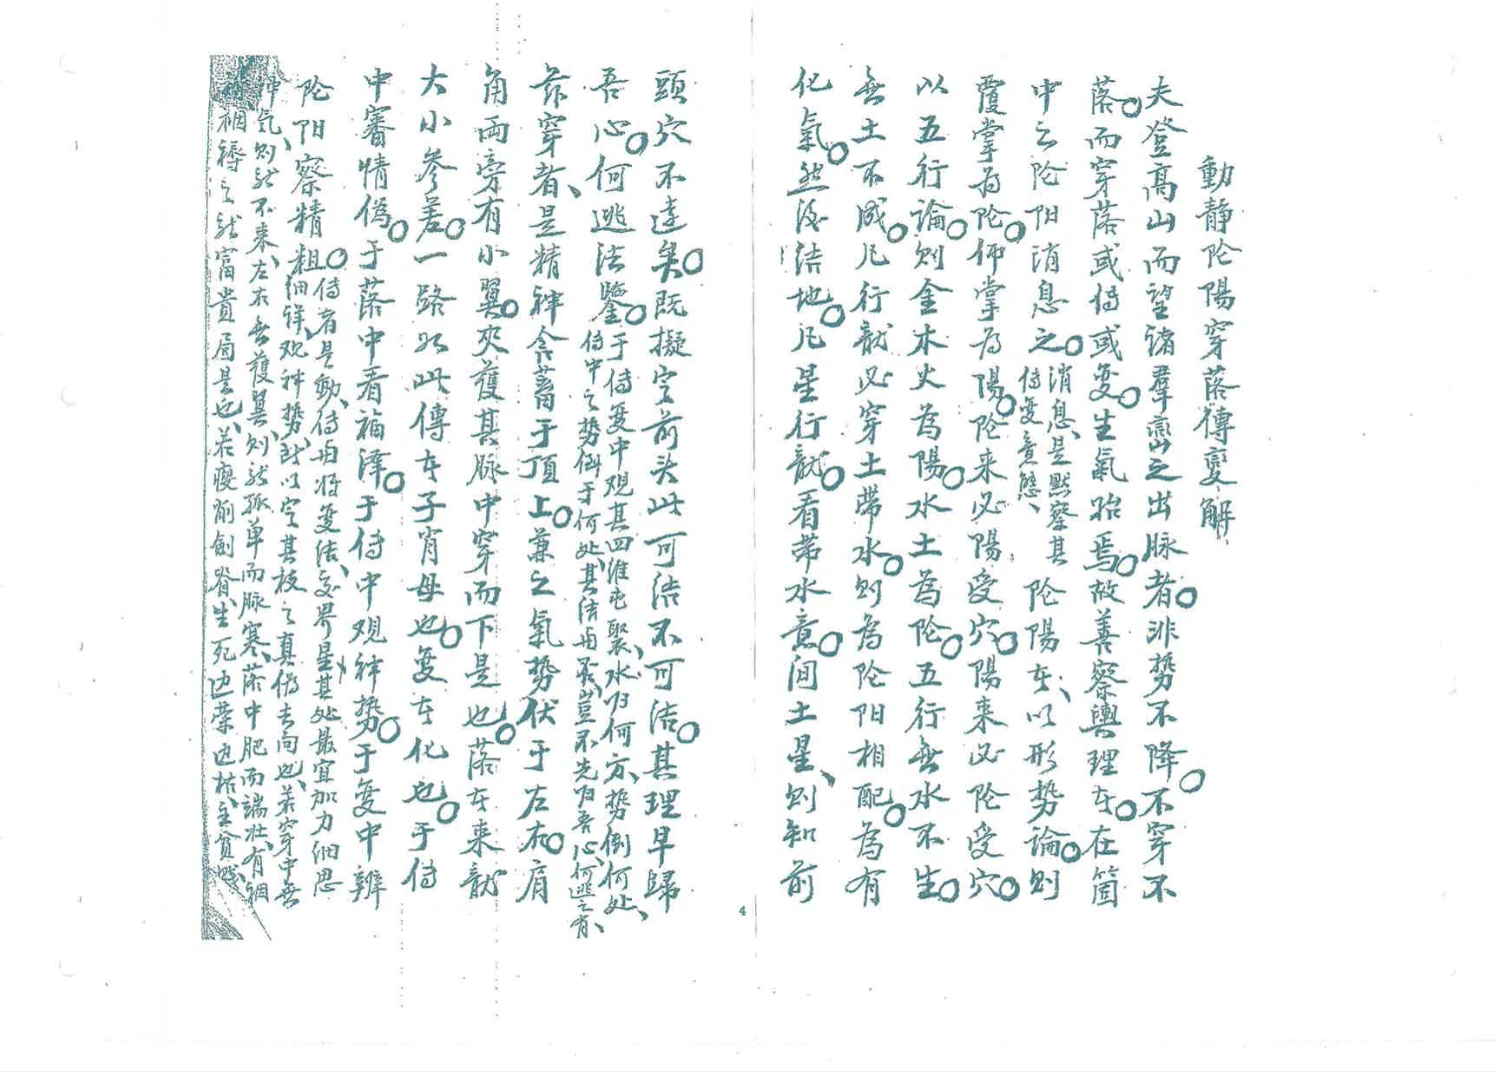 動静阴陽穿落傳变解
夫登高山而望諸羣巒之出脉者。非勢不降。不穿不
落。而穿落或傳或变。生氣胎焉。故善察輿理在。在箇
中之阴阳消息之。消息、是默察其
傳变意態、阴陽在、以形勢論。则
覆掌為阴。仰掌為陽。阴来必陽受穴。陽来必阴受穴。
以五行論。则金木火為陽。水土為阴。五行無水不生。
無土不成。凡行龍必穿土带水。则為阴阳相配。為有
化氣。然後结地。凡星行龍。看带水意。间土星、则知前
頭穴不遠矣。既擬穴前头此可结不可结。其理早歸
吾心。何逃法鑒。于傳变中观其四維屯聚、水归何方、勢倒何处、
傳中之勢倒于何处、其结与否、豈不先归吾心、何逃之有、
苐穿者、是精神含蓄于頂上。兼之氣勢伏于左右。肩
角両旁有小翼。夾護其脉中穿而下是也。落在来龍
大小参差。一路如此傳在子肖母也。变在化也。于傳
中審情偽。于落中看福泽。于傳中观神勢。于变中辨
阴阳察精粗。傳者是動、傳由将变法、交界星、其处最宜加力细思
细详、观神勢、所以定其枝之真偽去向也、若穿中無
中気、则龍不来、左右無護翼、则龍孤单而脉寒、落中肥而端壮、有裀
裀褥之龍富貴局是也、若瘦削劍脊、生死边荣边枯、主貧贱、
4